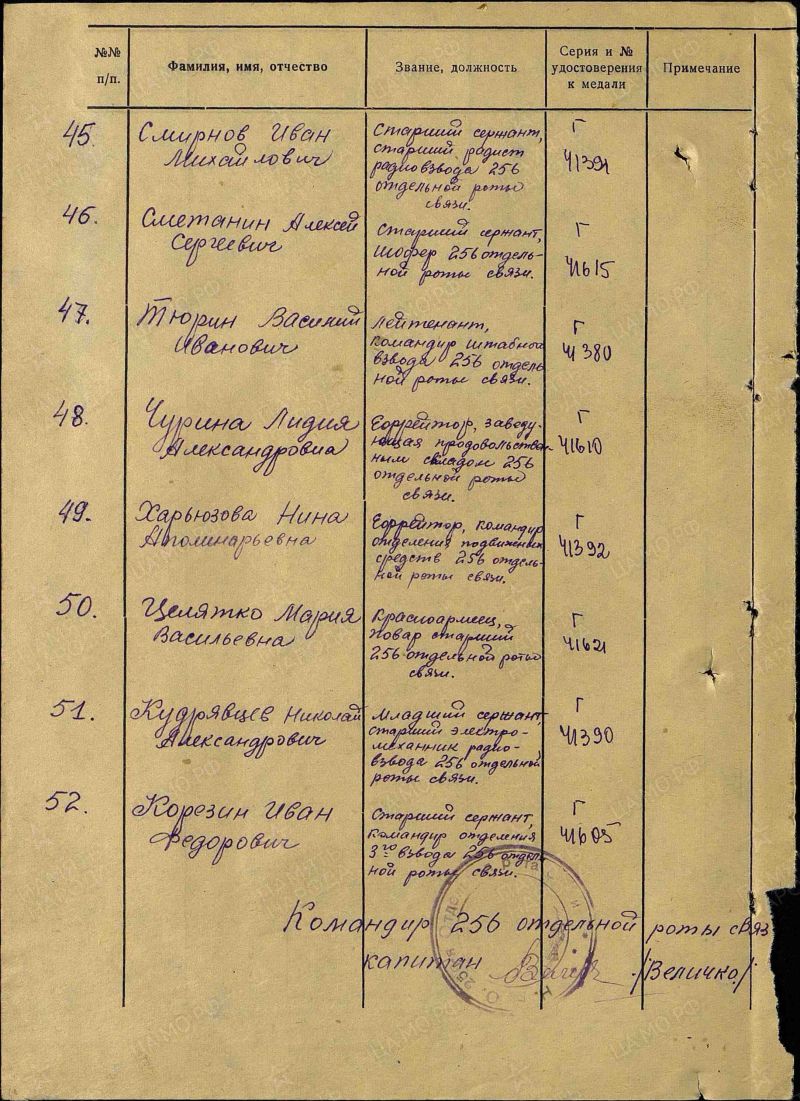 №№
п/п.
Фамилия, имя, отчество
Звание, должность
Серия и №
удостоверения
к медали
Примечание
45.
Смирнов Иван
Михайлович
Старший сержант,
старший радист
радиовзвода 256
отдельной роты
связи.
Г
41391
46.
Сметанин Алексей
Сергеевич
Старший сержант,
шофер 256 отдель-
ной роты связи.
Г
41615
47.
Тюрин Василий
Иванович
Лейтенант,
командир штабной
взвода 256 отдель
ной роты связи.
Г
41380
48.
Чурина Лидия
Александровна
Ефрейтор, заведу-
ющая продовольствен
ным складом 256
отдельной роты
связи.
Г
41610
49.
Харьюзова Нина
Аполинарьевна
Ефрейтор, командир
отделения подвижных
средств 256 отдель-
ной роты связи.
Г
41392
50.
Целятко Мария
Васильевна
Красноармеец,
повар старший
256 отдельной роты
связи.
Г
41621
51.
Кудрявцев Николай
Александрович
Младший сержант,
старший электро-
механник радио-
взвода 256 отдельной
роты связи.
Г
41390
52.
Корезин Иван
Федорович
Старший сержант,
командир отделения
3го взвода 256 отдель
ной роты связи.
Г
41605
Командир 256 отдельной роты связ
капитан /Величко/
ЦАМО.РФ